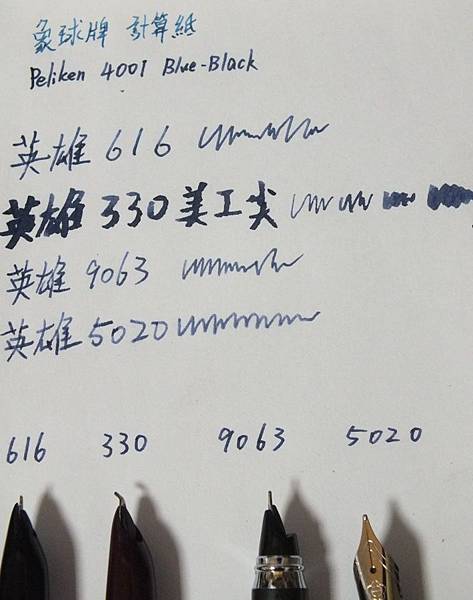 象球牌 計算紙
Peliken 4001 Blue-Black
英雄 616
英雄 330 美工尖
英雄 9063
英雄 5020
616 330 9063 5020